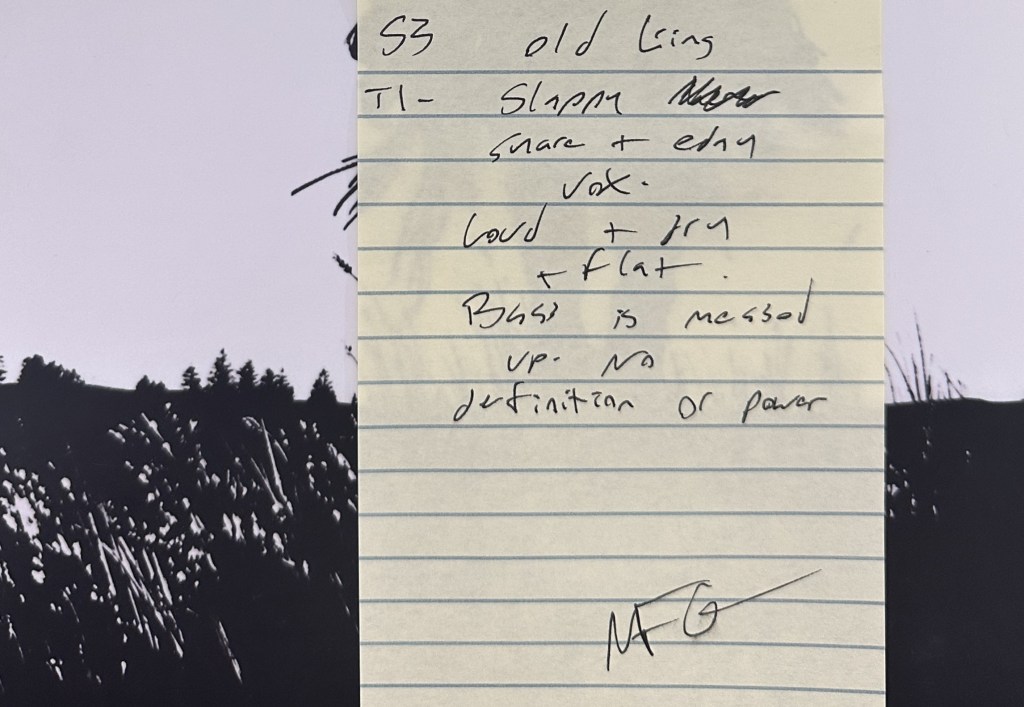 S3 old king
T1- Slappy
snare + edgy
vox.
Loud + dry
+ flat.
Bass is messed
up. No
definition or power
MFG